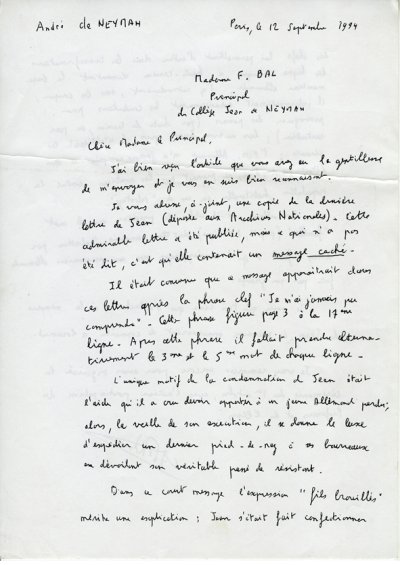 André de NEYMAN
Paris, le 12 Septembre 1994
Madame F. BAL
Principal
du Collège Jean de NEYMAN
Chère Madame le Principal,
J'ai bien reçu l'article que vous avez eu la gentillesse
de m'envoyer et je vous en suis bien reconnaissant.
Je vous adresse, ci-joint, une copie de la dernière
lettre de Jean (déposée aux Archives Nationales). Cette
admirable lettre a été publiée, mais ce qui n'a pas
été dit, c'est qu'elle contenait un message caché.
Il était convenu que ce message apparaîtrait dans
ces lettres après la phrase clef "Je n'ai jamais pu
comprendre". Cette phrase figure page 3 à la 17ème
ligne. Après cette phrase il fallait prendre alterna-
tivement le 3ème et le 5ème mot de chaque ligne.
L'unique motif de la condamnation de Jean était
l'aide qu'il a cru devoir apporter à un jeune Allemand perdu;
alors, la veille de son exécution, il se donne le luxe
d'expédier un dernier pied-de-nez à ses bourreaux
en dévoilant son véritable passé de résistant.
Dans ce court message l'expression "fils brouillés"
mérite une explication ; Jean s'était fait confectionner